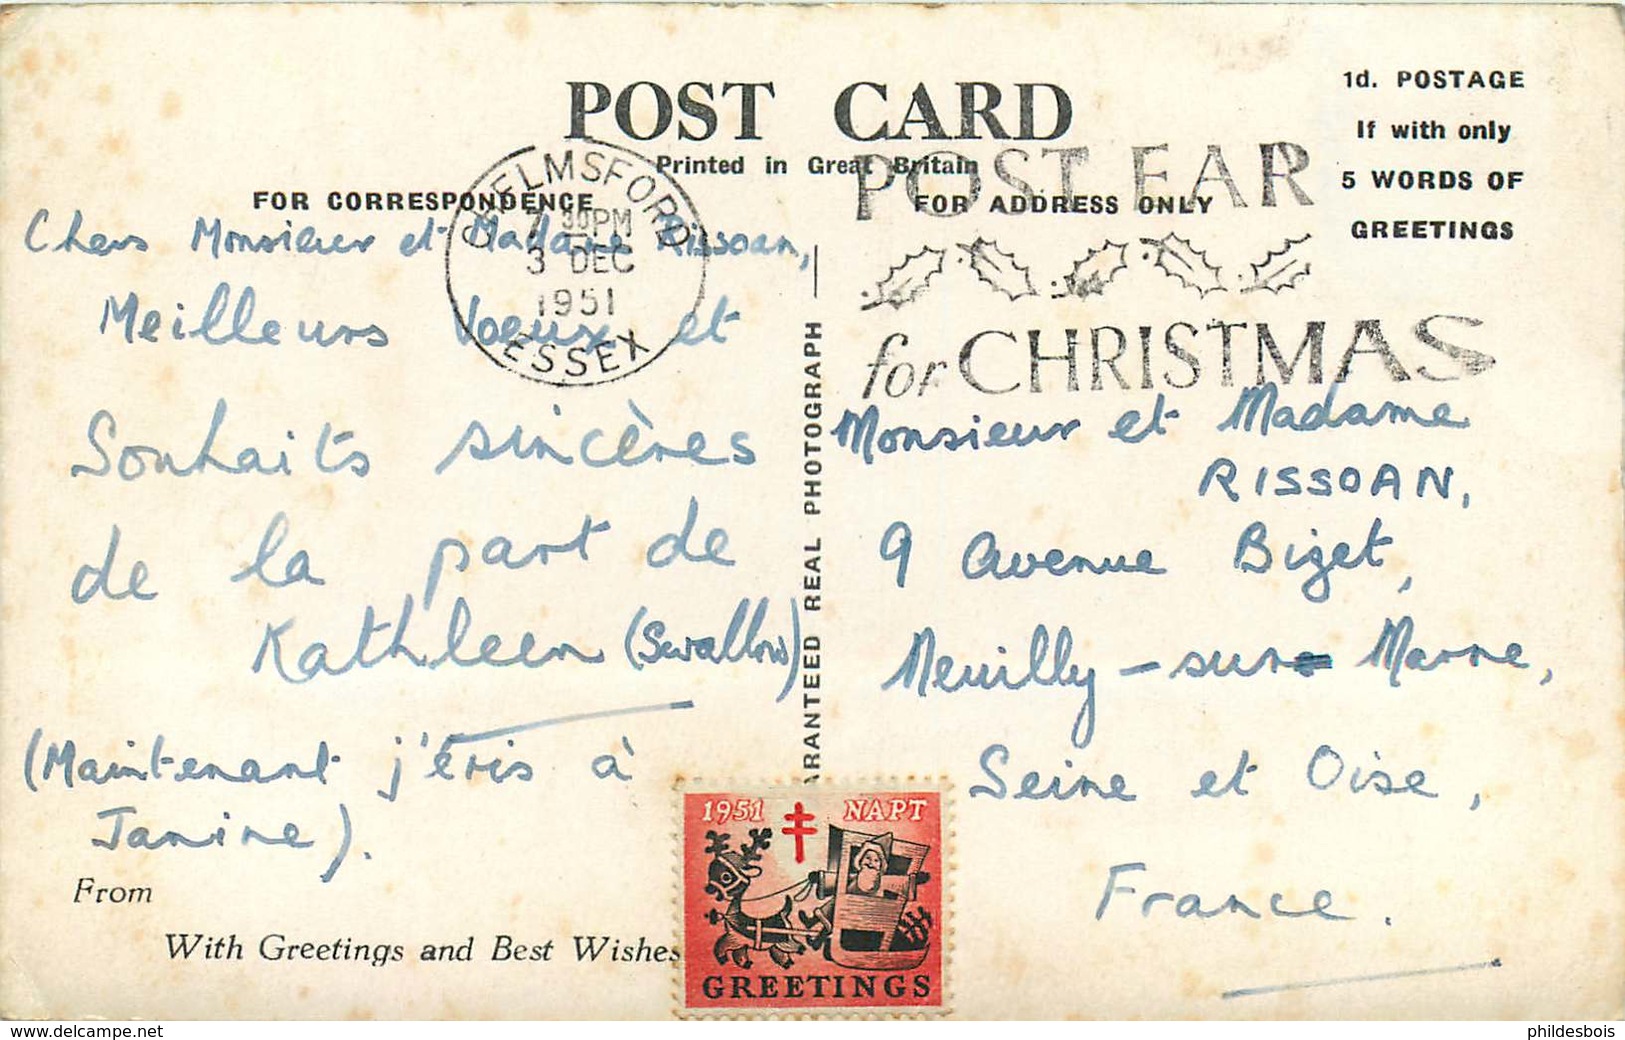 POST CARD
Printed in Great Britain
1d. POSTAGE
If with only
5 WORDS OF
GREETINGS
FOR CORRESPONDENCE
FOR ADDRESS ONLY
CHELMSFORD
7.30PM
3 DEC
1951
ESSEX
POST EARLY
for CHRISTMAS
Chers Monsieur et Madame Rissoan,
Meilleurs Voeux et
Souhaits sincères
de la part de
Kathleen (Swallow)
(Maintenant j'éris à
Janine).
From
With Greetings and Best Wishes
ARANTEED REAL PHOTOGRAPH
Monsieur et Madame
RISSOAN,
9 Avenue Bizet,
Neuilly-sur Marne,
Seine et Oise,
France.
1951 NAPT
GREETINGS
http://www.delcampe.net
phildesbois